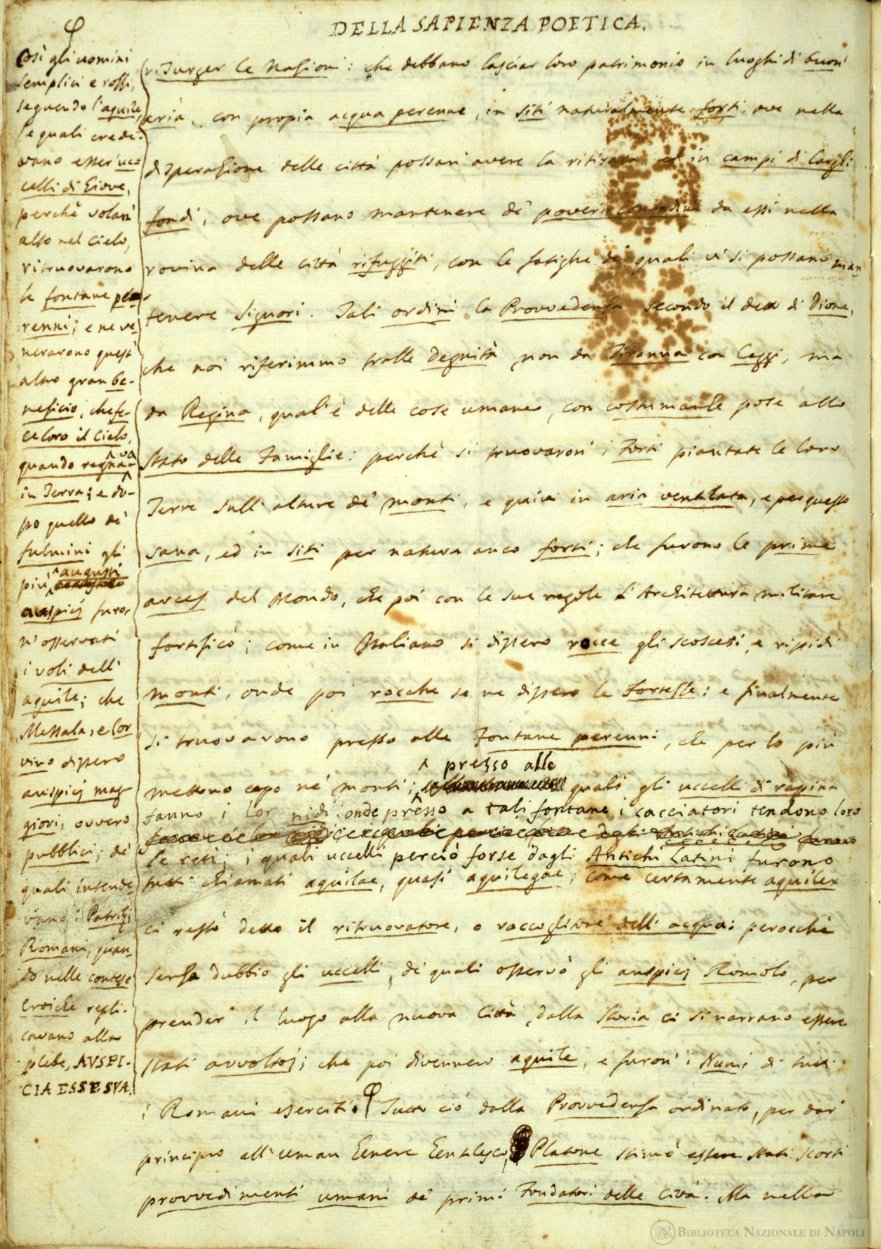 DELLA SAPIENZA POETICA.
risurger le Nazioni: che debbano lasciar loro patrimonio in luoghi di buon'
aria, con propia acqua perenne, in siti naturalmente forti, ove nella
disperazione delle città possan' avere la ritirata ed in campi di larghi
fondi, ove possano mantenere de' poveri contadini da essi nella
rovina delle città rifuggiti, con le fatighe de' quali vi si possano man
tenere Signori. Tali ordini la Provvedenza secondo il detto di Dione,
che noi riferimmo tralle Degnità, non da Tiranna con Leggi, ma
da Regina, qual'è delle cose umane, con costumanze pose allo
Stato delle Famiglie: perchè si truovaron' i Forti piantate le loro
Terre sull' alture de' monti, e quivi in aria ventilata, e per questo
sana, ed in siti per natura anco forti; che furono le prime
arces del Mondo, che poi con le sue regole l'Architettura militare
fortificò; come in Italiano si dissero rocce gli scoscesi, e ripidi
monti, onde poi rocche se ne dissero le Fortezze: e finalmente
si truovarono presso alle Fontane perenni, che per lo più
mettono capo ne' monti; presso alle quali gli uccelli di rapina
fanno i lor nidi; onde presso a tali fontane i cacciatori tendono loro
le reti; i quali uccelli perciò forse dagli Antichi Latini furono
tutti chiamati aquilae, quasi aquilegae; come certamente aquilex
ci restò detto il ritruovatore, o raccoglitore dell' acqua: perocchè
senza dubbio gli uccelli, de' quali osservò gli auspicj Romolo, per
prender' il luogo alla nuova Città, dalla Storia ci si narrano essere
stati avvoltoj; che poi divennero aquile, e furon' i Numi di tutti
i Romani eserciti. φ Tutto ciò dalla Provvedenza ordinato, per dar
principio all' uman Genere Gentilesco, Platone stimò essere stati scorti
provvedimenti umani de' primi Fondatori delle città. Ma nella
φ
Così gli uomini
semplici e rozzi,
seguendo l'aquile,
le quali crede-
vano esser uc-
celli di Giove,
perchè volan'
alto nel Cielo,
ritruovarono
le fontane pe
renni; e ne ve
nerarono quest'
altro gran be-
neficio, che fe-
ce loro il Cielo,
quando regnava
in Terra; e do-
po quello de'
fulmini gli
più augusti
auspicj furon
n' osservati
i voli dell'
aquile; che
Messala, e Cor
vino dissero
auspicj mag
giori, ovvero
pubblici; de'
quali intende
vano i Patrizj
Romani, quan
do nelle contese
eroiche repli-
cavano alla
plebe, AUSPI-
CIA ESSE SUA.
BIBLIOTECA NAZIONALE DI NAPOLI